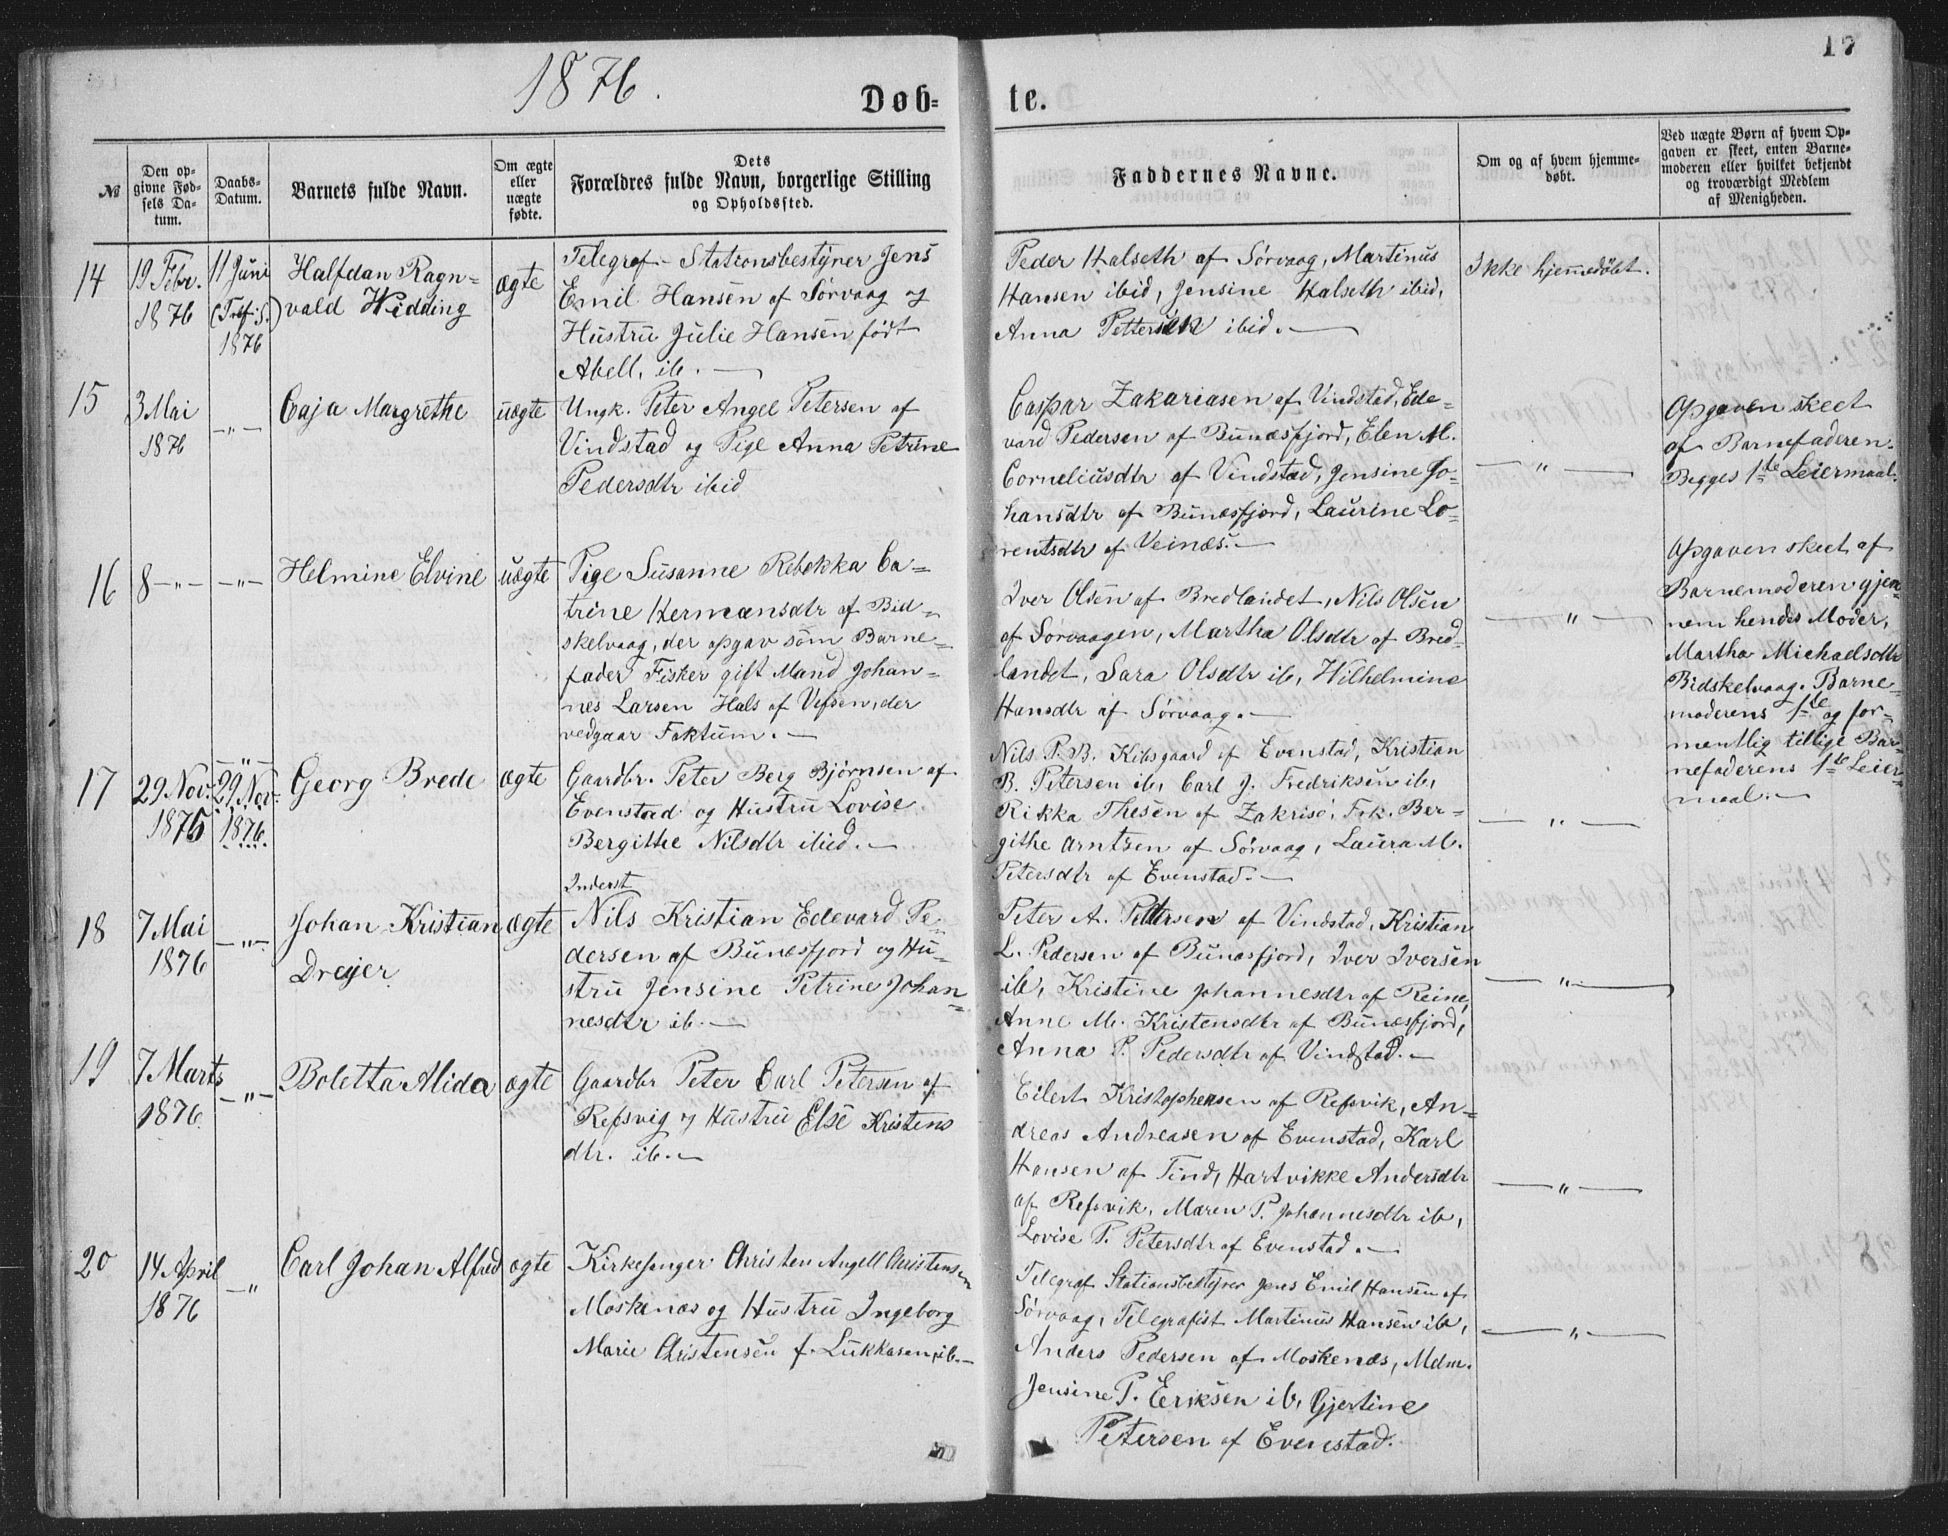 1876.
17
Døb-
te.
№
Den op-
givne Fød-
sels Da-
tum.
Daabs-
Datum.
Barnets fulde Navn.
Om ægte
eller
uægte
fødte.
Dets
Forældres fulde Navn, borgerlige Stilling
og Opholdssted.
Faddernes Navne.
Om og af hvem hjemme-
døbt.
Ved uægte Børn af hvem Op-
gaven er skeet, enten Barne-
moderen eller hvilket bekjendt
og troværdigt Medlem
af Menigheden.
14
19 Febr.
1876
11 Juni
(Tref. S.)
1876
Halfdan Ragn-
vald Widding
ægte
Telegraf-Stationsbestyrer Jens
Emil Hansen af Sørvaag og
Hustru Julie Hansen født
Abell, ib.
Peder Halseth af Sørvaag, Martinus
Hansen ibid, Jensine Halseth ibid,
Anna Pettersen ibid.
Ikke hjemmedøbt.
15
3 Mai
1876
-"-
Caja Margrethe
uægte
Ungk. Peter Angel Petersen af
Vindstad og Pige Anna Petrine
Pedersdtr ibid
Caspar Zakariasen af Vindstad, Ede-
vard Pedersen af Bunæsfjord, Elen M.
Corneliusdtr af Vindstad, Jensine Jo-
hansdtr af Bunæsfjord, Laurine Lo-
rentsdtr af Veinæs.
-"-
Opgaven skeet
af Barnefaderen.
Begges 1ste Leiermaal.
16
8 -"-
-"-
Helmine Elvine
uægte
Pige Susanne Rebekka Ca-
trine Hermansdtr af Bid-
skelvaag, der opgav som Barne-
fader Fisker gift Mand Johan-
nes Larsen Hals af Vefsen, der
vedgaar Faktum.
Iver Olsen af Bredlandet, Nils Olsen
af Sørvaagen, Martha Olsdtr af Bred-
landet, Sara Olsdtr ib, Wilhelmine
Hansdtr af Sørvaag.
-"-
Opgaven skeet af
Barnemoderen gjen-
nem hendes Moder,
Martha Michaelsdtr
Bidskelvaag. Barne-
moderens 1ste og for-
mentlig tillige Bar-
nefaderens 1ste Leier-
maal.
17
29 Nov.
1875
-"-
29 Nov.
1876
Georg Brede
ægte
Gaardbr. Peter Berg Bjørnsen af
Evenstad og Hustru Lovise
Bergithe Nilsdtr ibid.
Nils P. B. Kibsgaard af Evenstad, Kristian
B. Petersen ib, Carl J. Fredriksen ib,
Rikka Thesen af Zakrisø, Frk. Ber-
githe Arntzen af Sørvaag, Laura M.
Petersdtr af Evenstad.
-"-
18
7 Mai
1876
-"-
Johan Kristian
Dreyer
ægte
Inderst
Nils Kristian Edevard Pe-
dersen af Bunæsfjord og Hu-
stru Jensine Petrine Johan-
nesdtr ib.
Peter A. Pettersen af Vindstad, Kristian
L. Pedersen af Bunæsfjord, Iver Iversen
ib, Kristine Johannesdtr af Reine,
Anne M. Kristensdtr af Bunæsfjord,
Anna P. Pedersdtr af Vindstad.
-"-
19
7 Marts
1876
-"-
Boletta Alida
ægte
Gaardbr Peter Carl Petersen af
Refsvig og Hustru Else Kristens
dtr. ib.
Eilert Kristophersen af Refsvik, An-
dreas Andreasen af Evenstad, Karl
Hansen af Tind, Hartvikke Andersdtr
af Refsvik, Maren P. Johannesdtr ib,
Lovise P. Petersdtr af Evenstad.
-"-
20
14 April
1876
-"-
Carl Johan Alfred
ægte
Kirkesanger Christen Angell Christensen
Moskenæs og Hustru Ingeborg
Marie Christensen f. Lukkasen, ib.
Telegraf Stationsbestyrer Jens Emil Hansen af
Sørvaag, Telegrafist Martinus Hansen ib,
Anders Pedersen af Moskenæs, Mdm.
Jensine P. Eriksen ib, Gjertine
Petersen af Evenstad.
-"-